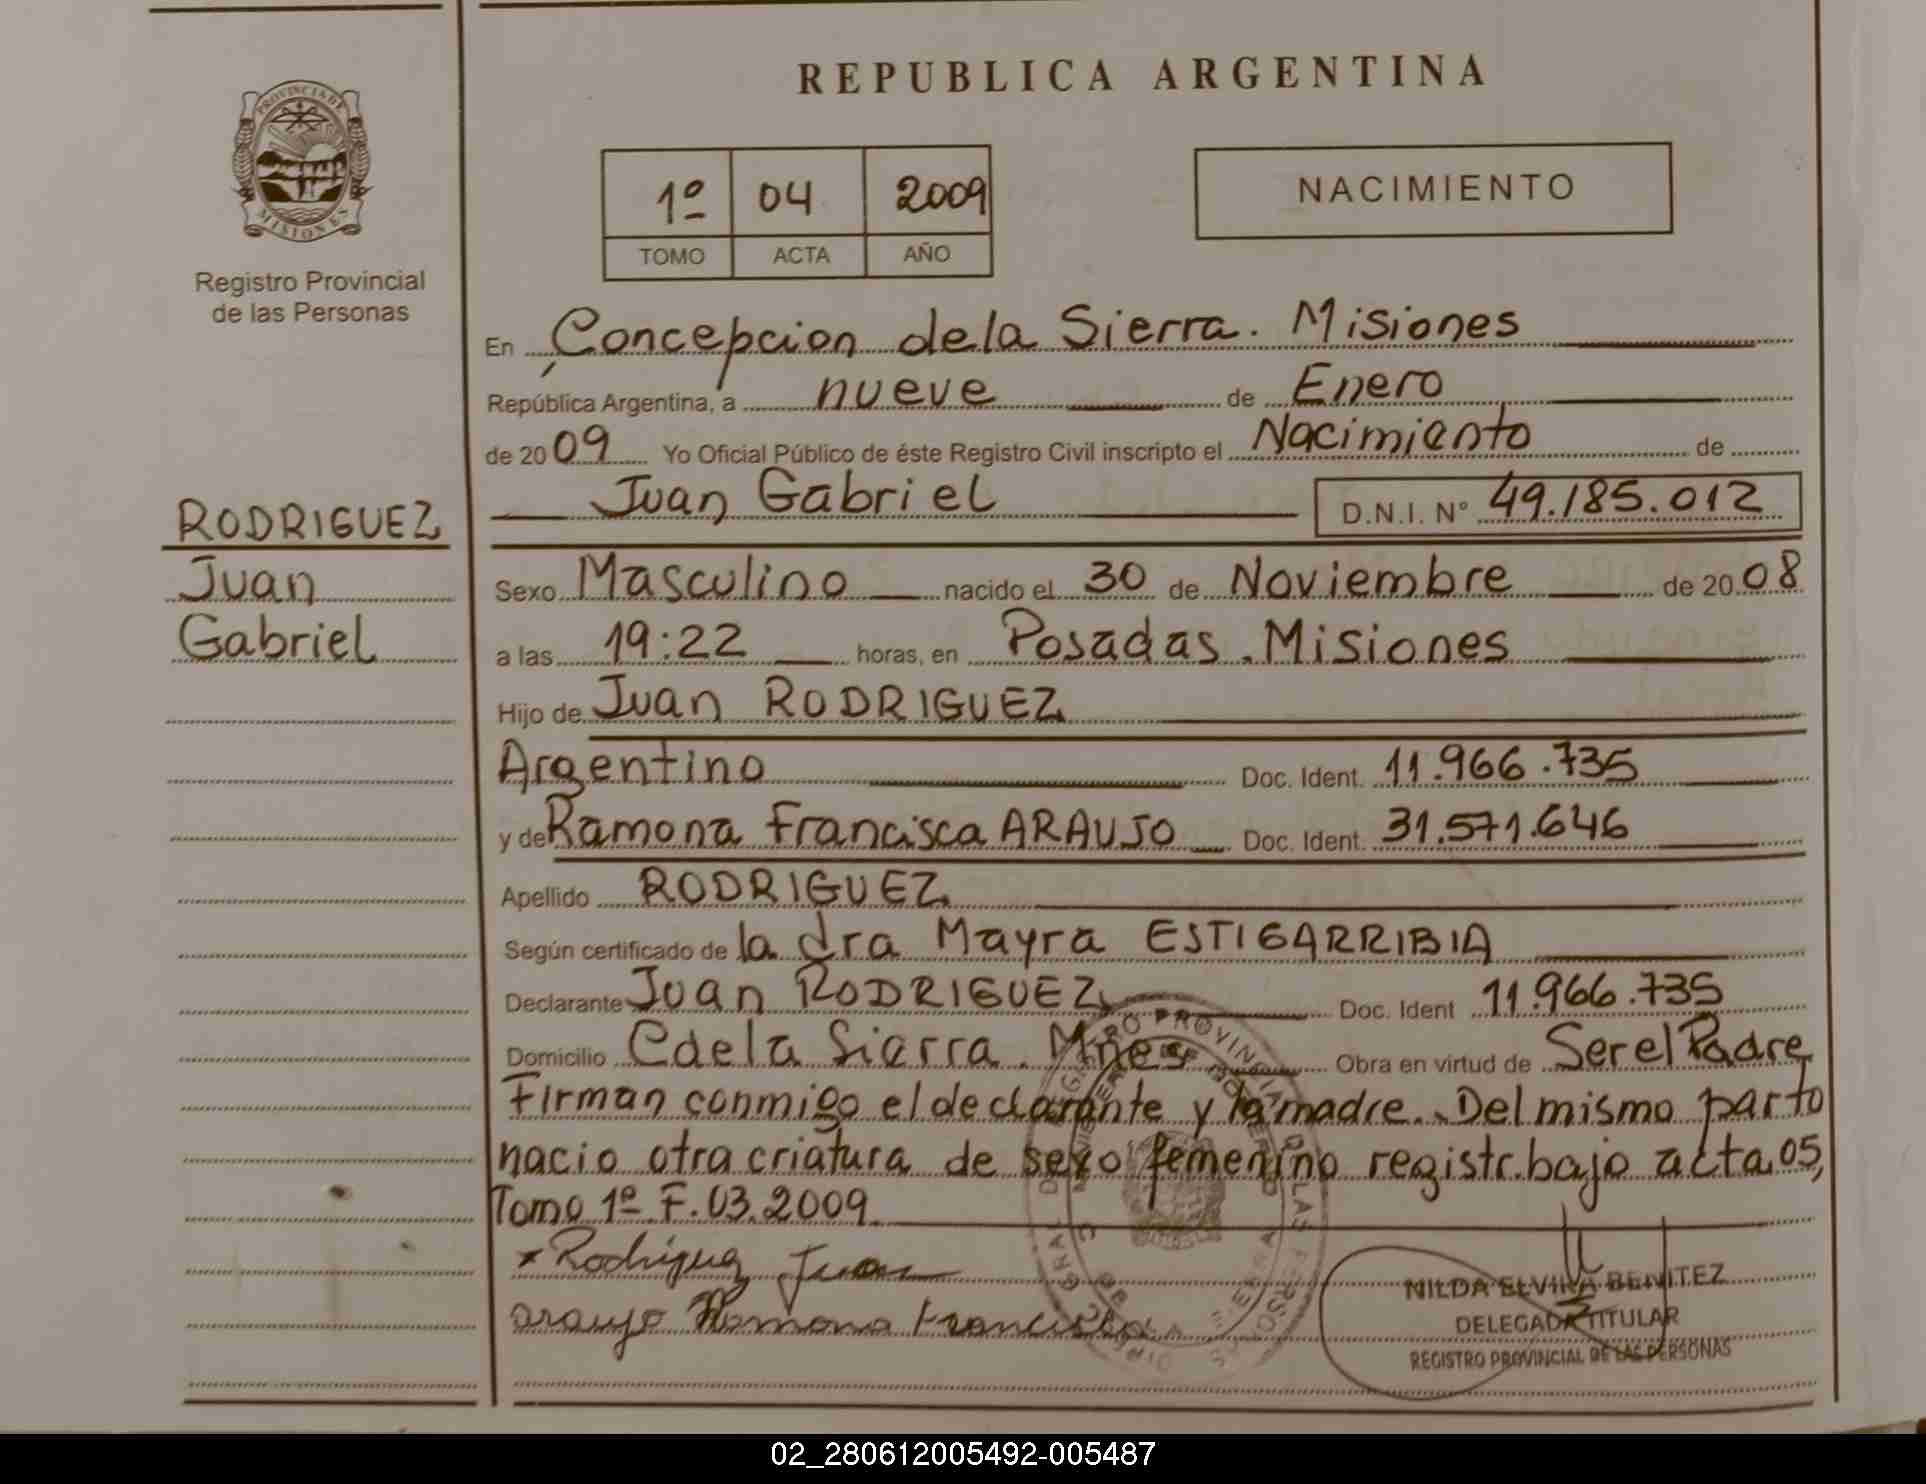 REPUBLICA ARGENTINA
PROVINCIA DE
MISIONES
Registro Provincial
de las Personas
1º 04 2009
TOMO ACTA AÑO
NACIMIENTO
En Concepcion de la Sierra. Misiones
República Argentina, a nueve de Enero
de 2009 Yo Oficial Público de éste Registro Civil inscripto el Nacimiento de
Juan Gabriel D.N.I. Nº 49.185.012
RODRIGUEZ
Juan
Gabriel
Sexo Masculino nacido el 30 de Noviembre de 2008
a las 19:22 horas, en Posadas. Misiones
Hijo de Juan RODRIGUEZ
Argentino Doc. Ident. 11.966.735
y de Ramona Francisca ARAUJO Doc. Ident. 31.571.646
Apellido RODRIGUEZ
Según certificado de la dra Mayra ESTIGARRIBIA
Declarante Juan RODRIGUEZ Doc. Ident 11.966.735
Domicilio C de la Sierra. Mnes Obra en virtud de Ser el Padre
Firman conmigo el declarante y la madre. Del mismo parto
nacio otra criatura de sexo femenino registr. bajo acta 05,
Tomo 1º F. 03. 2009
Rodriguez Juan
araujo Ramona Francisca
NILDA ELVIRA BENITEZ
DELEGADA TITULAR
REGISTRO PROVINCIAL DE LAS PERSONAS
02_280612005492-005487